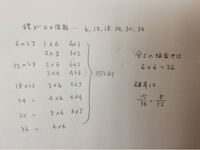 積が6の倍数… 6, 12, 18, 24, 30, 36
6のとき 1×6 6×1
2×3 3×2
12のとき 2×6 6×2
3×4 4×3
18のとき 3×6 6×3
24 〃 4×6 6×4
30 〃 5×6 6×5
36 〃 6×6
15通り
全ての場合では
6×6=36
確率は
15/36 = 5/12